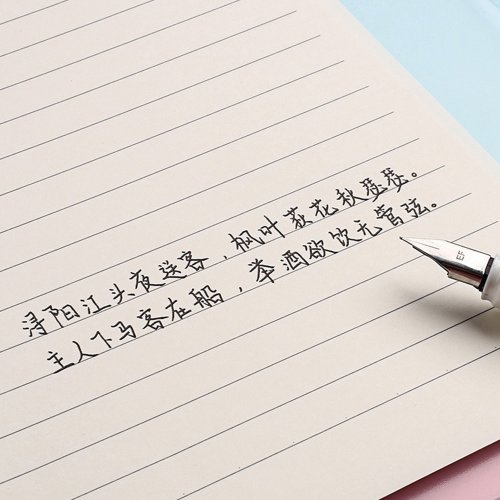 浔阳江头夜送客，枫叶荻花秋瑟瑟。
主人下马客在船，举酒欲饮无管弦。
EF